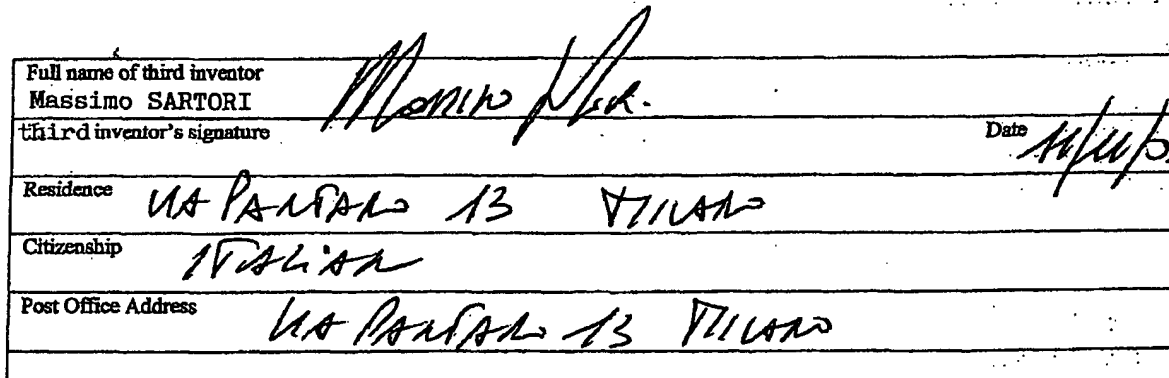 Full name of third inventor
Massimo SARTORI
third inventor's signature
Date
Residence VIA PANTANO 13 MILANO
Citizenship ITALIAN
Post Office Address VIA PANTANO 13 MILANO